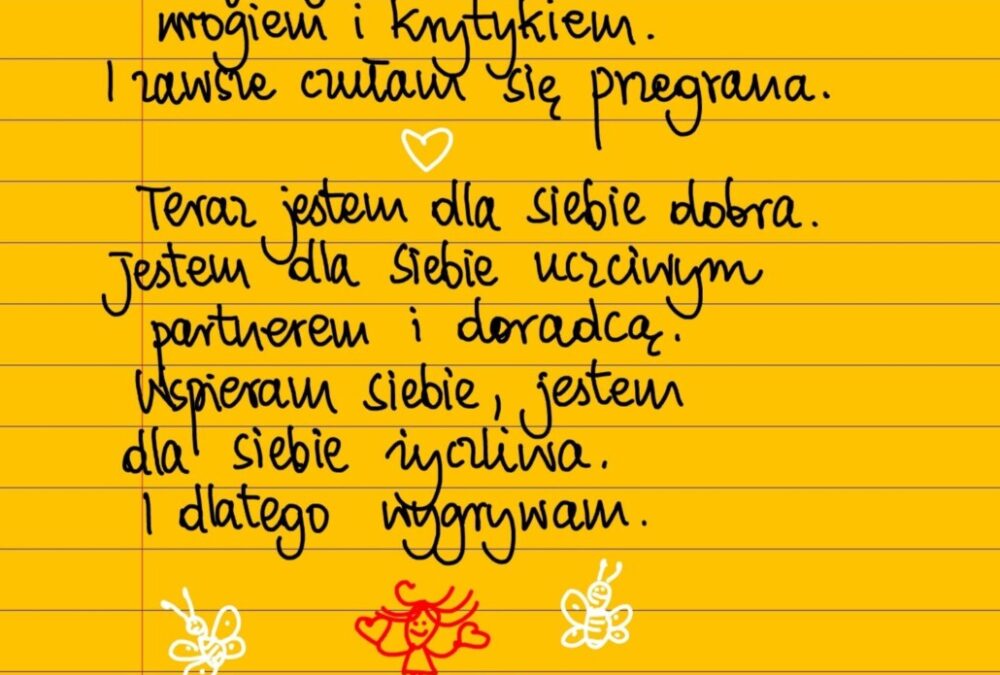 wrogiem i krytykiem.
I zawsze czułam się przegrana.
Teraz jestem dla siebie dobra.
Jestem dla siebie uczciwym
partnerem i doradcą.
Wspieram siebie, jestem
dla siebie życzliwa.
I dlatego wygrywam.